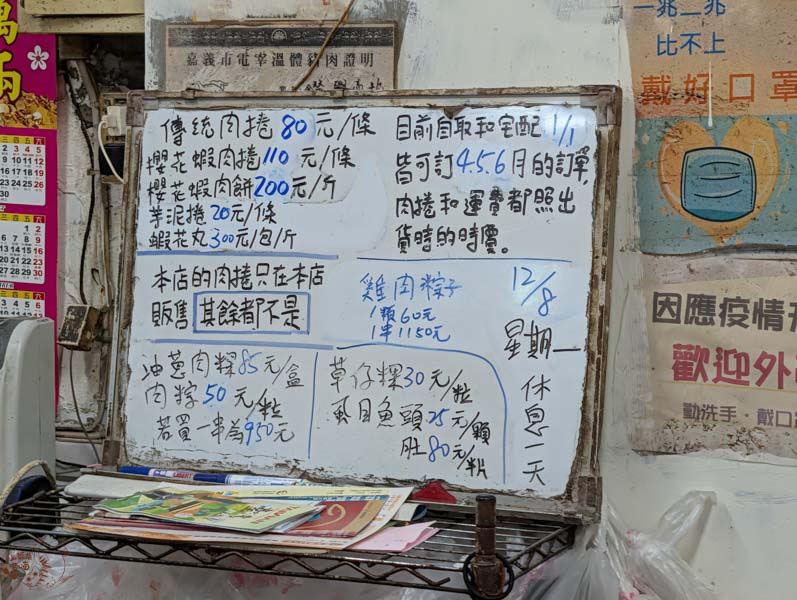 嘉義市電宰溫體豬肉證明
傳統肉捲80元/條
櫻花蝦肉捲110元/條
櫻花蝦肉餅200元/斤
芋泥捲20元/條
蝦花丸300元/包/斤
目前自取和宅配1/1
皆可訂4.5.6月的訂單,
肉捲和運費都照出
貨時的時價。
本店的肉捲只在本店
販售其餘都不是
雞肉粽子
1顆60元
1串1150元
12/8
星期一
休息一天
油蔥肉粿85元/盒
肉粽50元/粒
若買一串為950元
草仔粿30元/粒
虱目魚頭25元/顆
肚80元/片
一兆二兆
比不上
戴好口罩
因應疫情升
歡迎外
勤洗手．戴口